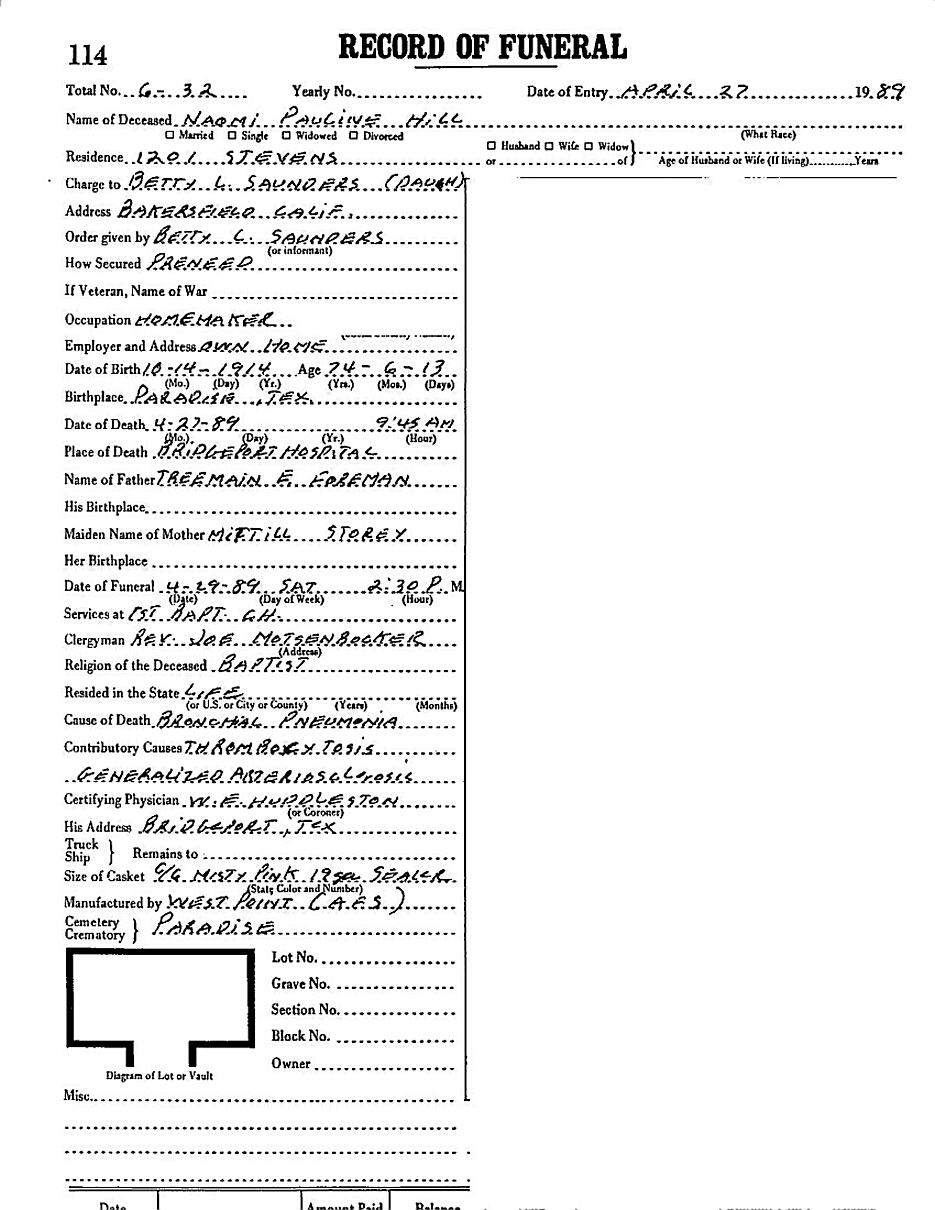 114
RECORD OF FUNERAL
Total No. 6-32 Yearly No. Date of Entry APRIL 27 1989
Name of Deceased NAOMI PAULINE HILL
☐ Married ☐ Single ☐ Widowed ☐ Divorced (What Race)
Residence 1201 STEVENS ☐ Husband ☐ Wife ☐ Widow } or of Age of Husband or Wife (If living) Years
Charge to BETTY L. SAUNDERS (DAUGH)
Address BAKERSFIELD CALIF.
Order given by BETTY L. SAUNDERS
(or informant)
How Secured PRENEED
If Veteran, Name of War
Occupation HOMEMAKER
Employer and Address OWN HOME
Date of Birth 10-14-1914 Age 74-6-13
(Mo.) (Day) (Yr.) (Yrs.) (Mos.) (Days)
Birthplace PARADISE, TEX.
Date of Death 4-27-89 9:45 AM
(Mo.) (Day) (Yr.) (Hour)
Place of Death BRIDGEPORT HOSPITAL
Name of Father TREEMAIN E. FOREMAN
His Birthplace
Maiden Name of Mother STOREY
Her Birthplace
Date of Funeral 4-29-89 SAT 2:30 P. M
(Date) (Day of Week) (Hour)
Services at 1ST BAPT. CH.
Clergyman REV. JOE MOTSENBOCKER
(Address)
Religion of the Deceased BAPTIST
Resided in the State LIFE
(or U.S. or City or County) (Years) (Months)
Cause of Death BRONCHIAL PNEUMONIA
Contributory Causes
GENERALIZED
Certifying Physician W.E. HUDDLESTON
(or Coroner)
His Address BRIDGEPORT, TEX
Truck
Ship } Remains to
Size of Casket 6/6 MISTY PINK 19ga SEALER
(State Color and Number)
Manufactured by WEST POINT (A.E.S.)
Cemetery
Crematory } PARADISE
Lot No.
Grave No.
Section No.
Block No.
Owner
Diagram of Lot or Vault
Misc.
Date Amount Paid Balance